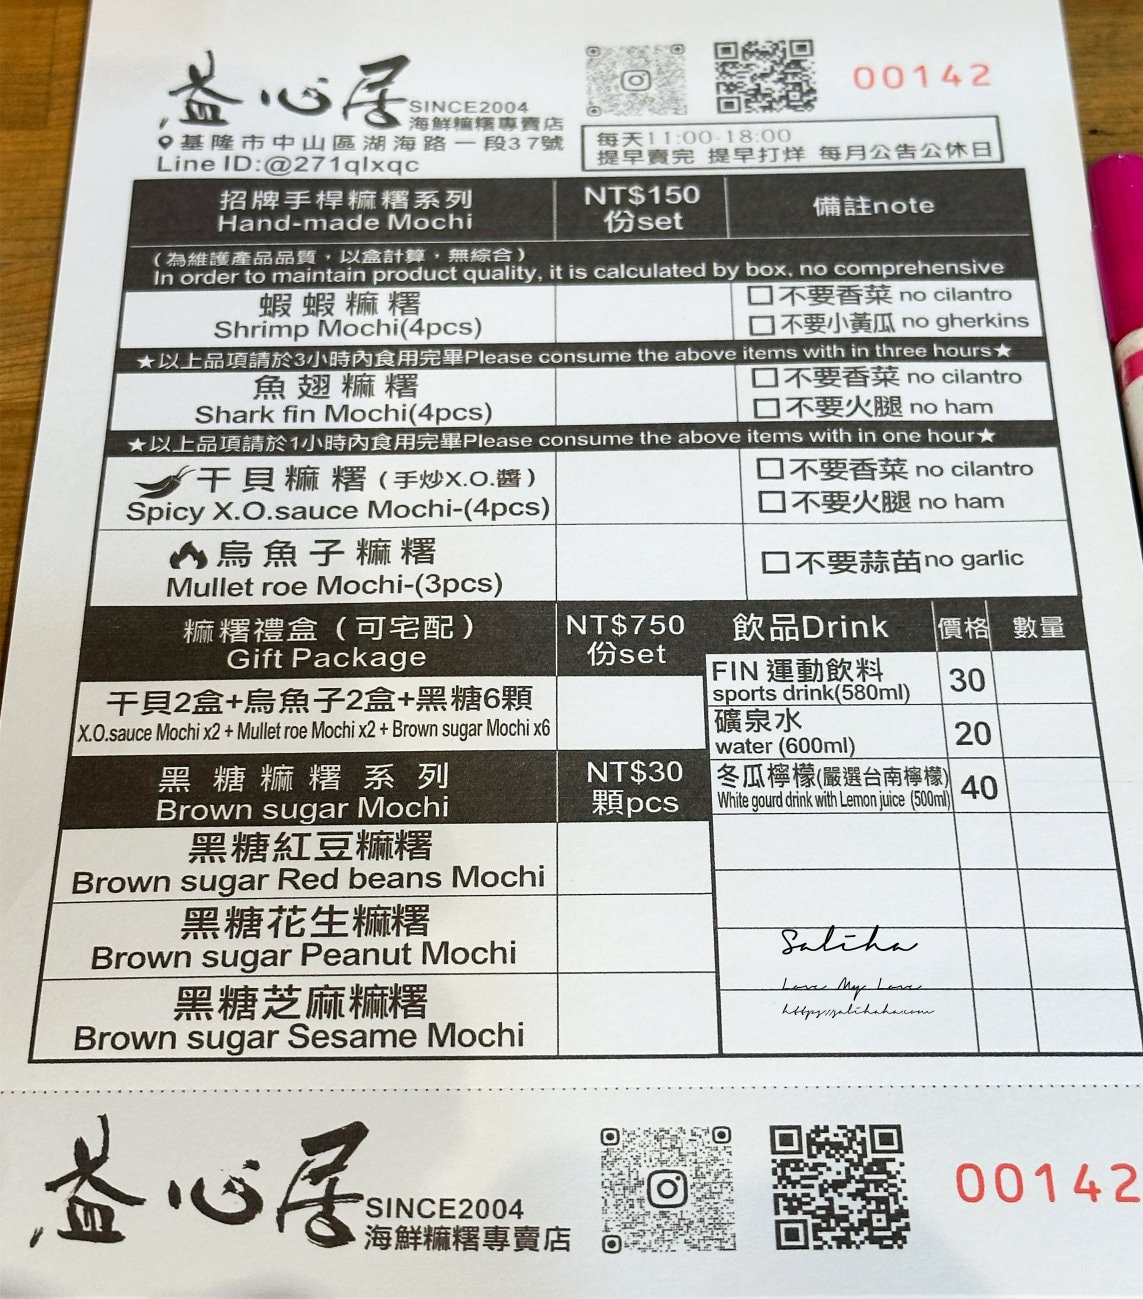 益心居
SINCE2004
海鮮糍糬專賣店
00142
基隆市中山區湖海路一段37號
Line ID:@271qlxqc
每天11:00-18:00
提早賣完 提早打烊 每月公告公休日
招牌手桿糍糬系列
Hand-made Mochi
NT$150
份set
備註note
(為維護產品品質，以盒計算，無綜合)
In order to maintain product quality, it is calculated by box, no comprehensive
蝦蝦糍糬
Shrimp Mochi(4pcs)
□不要香菜 no cilantro
□不要小黃瓜 no gherkins
★以上品項請於3小時內食用完畢Please consume the above items with in three hours★
魚翅糍糬
Shark fin Mochi(4pcs)
□不要香菜 no cilantro
□不要火腿 no ham
★以上品項請於1小時內食用完畢Please consume the above items with in one hour★
干貝糍糬(手炒X.O.醬)
Spicy X.O.sauce Mochi-(4pcs)
□不要香菜 no cilantro
□不要火腿 no ham
烏魚子糍糬
Mullet roe Mochi-(3pcs)
□不要蒜苗no garlic
糍糬禮盒(可宅配)
Gift Package
NT$750
份set
干貝2盒+烏魚子2盒+黑糖6顆
X.O.sauce Mochi x2 + Mullet roe Mochi x2 + Brown sugar Mochi x6
飲品Drink 價格 數量
FIN 運動飲料
sports drink(580ml)
30
礦泉水
water (600ml)
20
冬瓜檸檬(嚴選台南檸檬)
White gourd drink with Lemon juice (500ml)
40
黑糖糍糬系列
Brown sugar Mochi
NT$30
顆pcs
黑糖紅豆糍糬
Brown sugar Red beans Mochi
黑糖花生糍糬
Brown sugar Peanut Mochi
黑糖芝麻糍糬
Brown sugar Sesame Mochi
Saliha
Love My Love
https://salihaha.com
益心居
SINCE2004
海鮮糍糬專賣店
00142